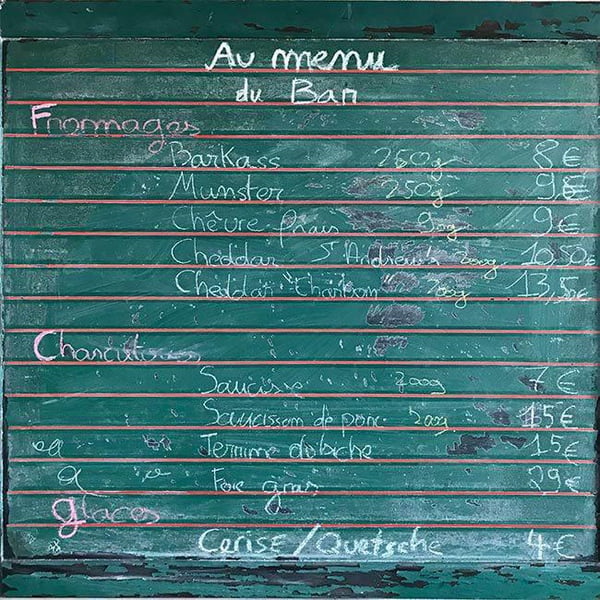 Au menu
du Bar
Fromages
Barkass 250g 8€
Munster 250g 9€
Chêvre frais 90g 9€
Cheddar St Andrews 200g 10,50€
Cheddar "Charbon" 200g 13,50€
Charcuteries
Saucisse 200g 7€
Saucisson de porc 200g 15€
Terrine de biche 15€
Foie gras 29€
glaces
Cerise/Quetsche 4€